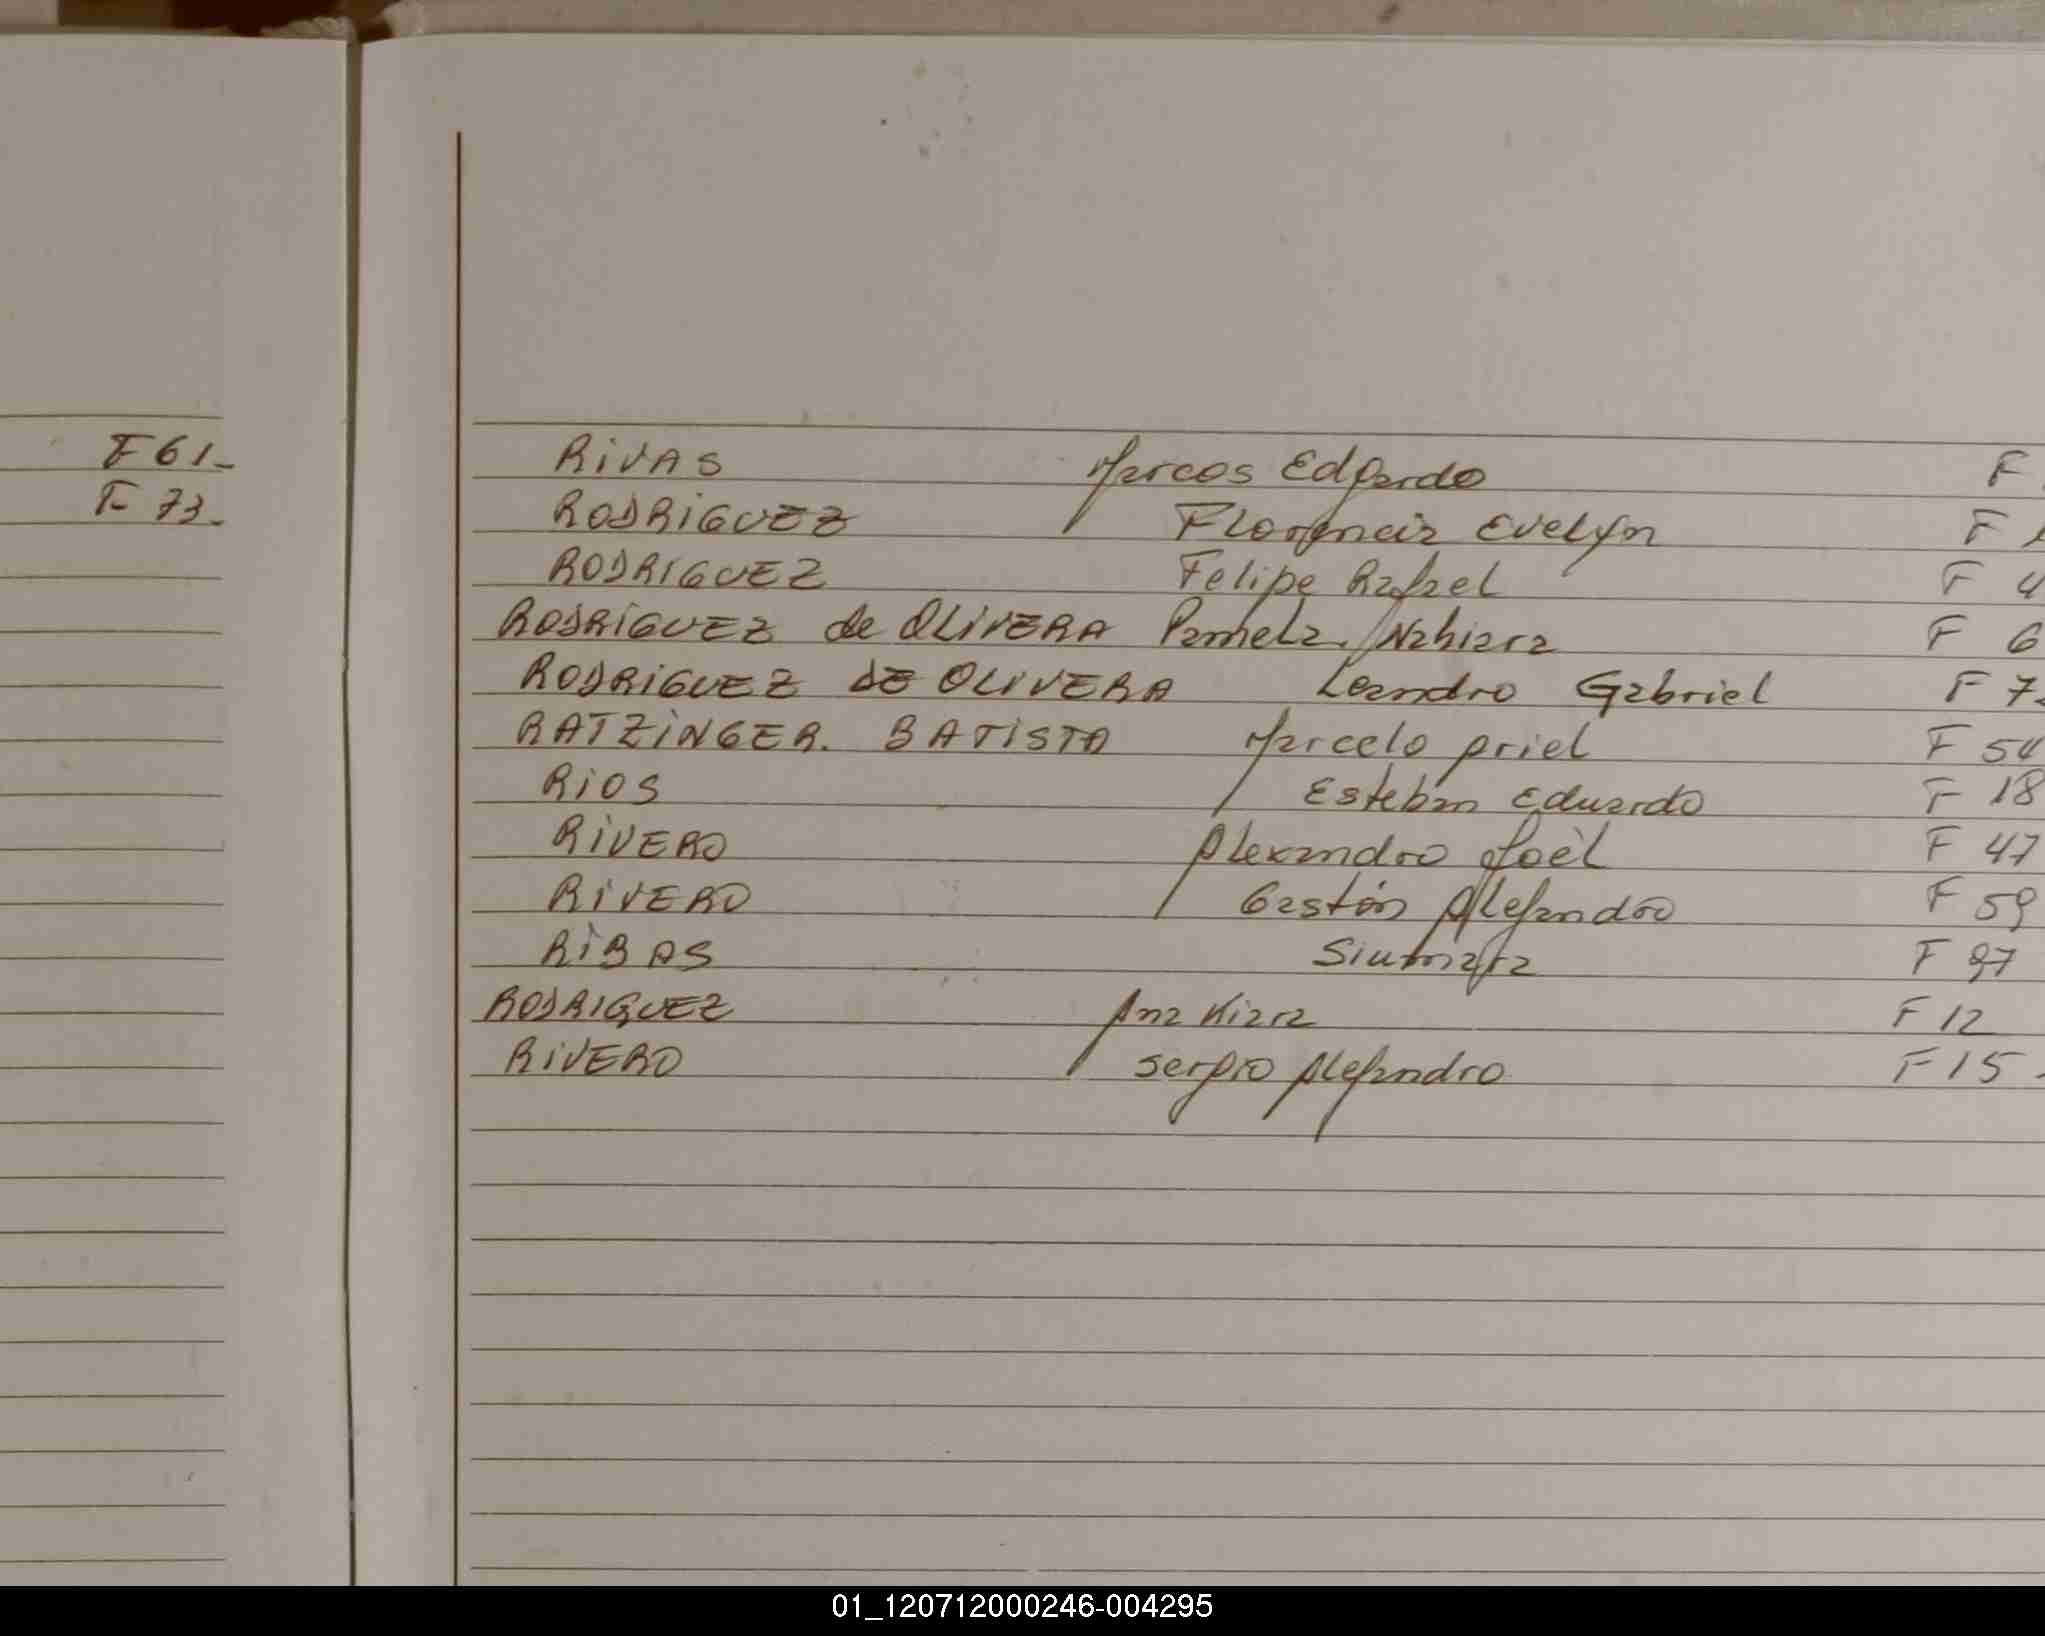 F 61-
F 73-
RiVAS Marcos Edgardo F
RODRiGUEZ Florencia Evelyn F
RODRIGUEZ Felipe Rafael F 4
RODRiGUEZ de OLiVERA Pamela Nahiara F 6
RODRiGUEZ DE OLIVERA Leandro Gabriel F 7
RATZiNGER. BATiSTA Marcelo Ariel F 54
RiOS Esteban Eduardo F 18
RiVERO Alexandro Joèl F 47
RiVERO Gastón Alejandro F 59
RiBAS Siumara F 97
RODRIGUEZ Ana Kiara F 12
RiVERO Sergio Alejandro F 15
01_120712000246-004295